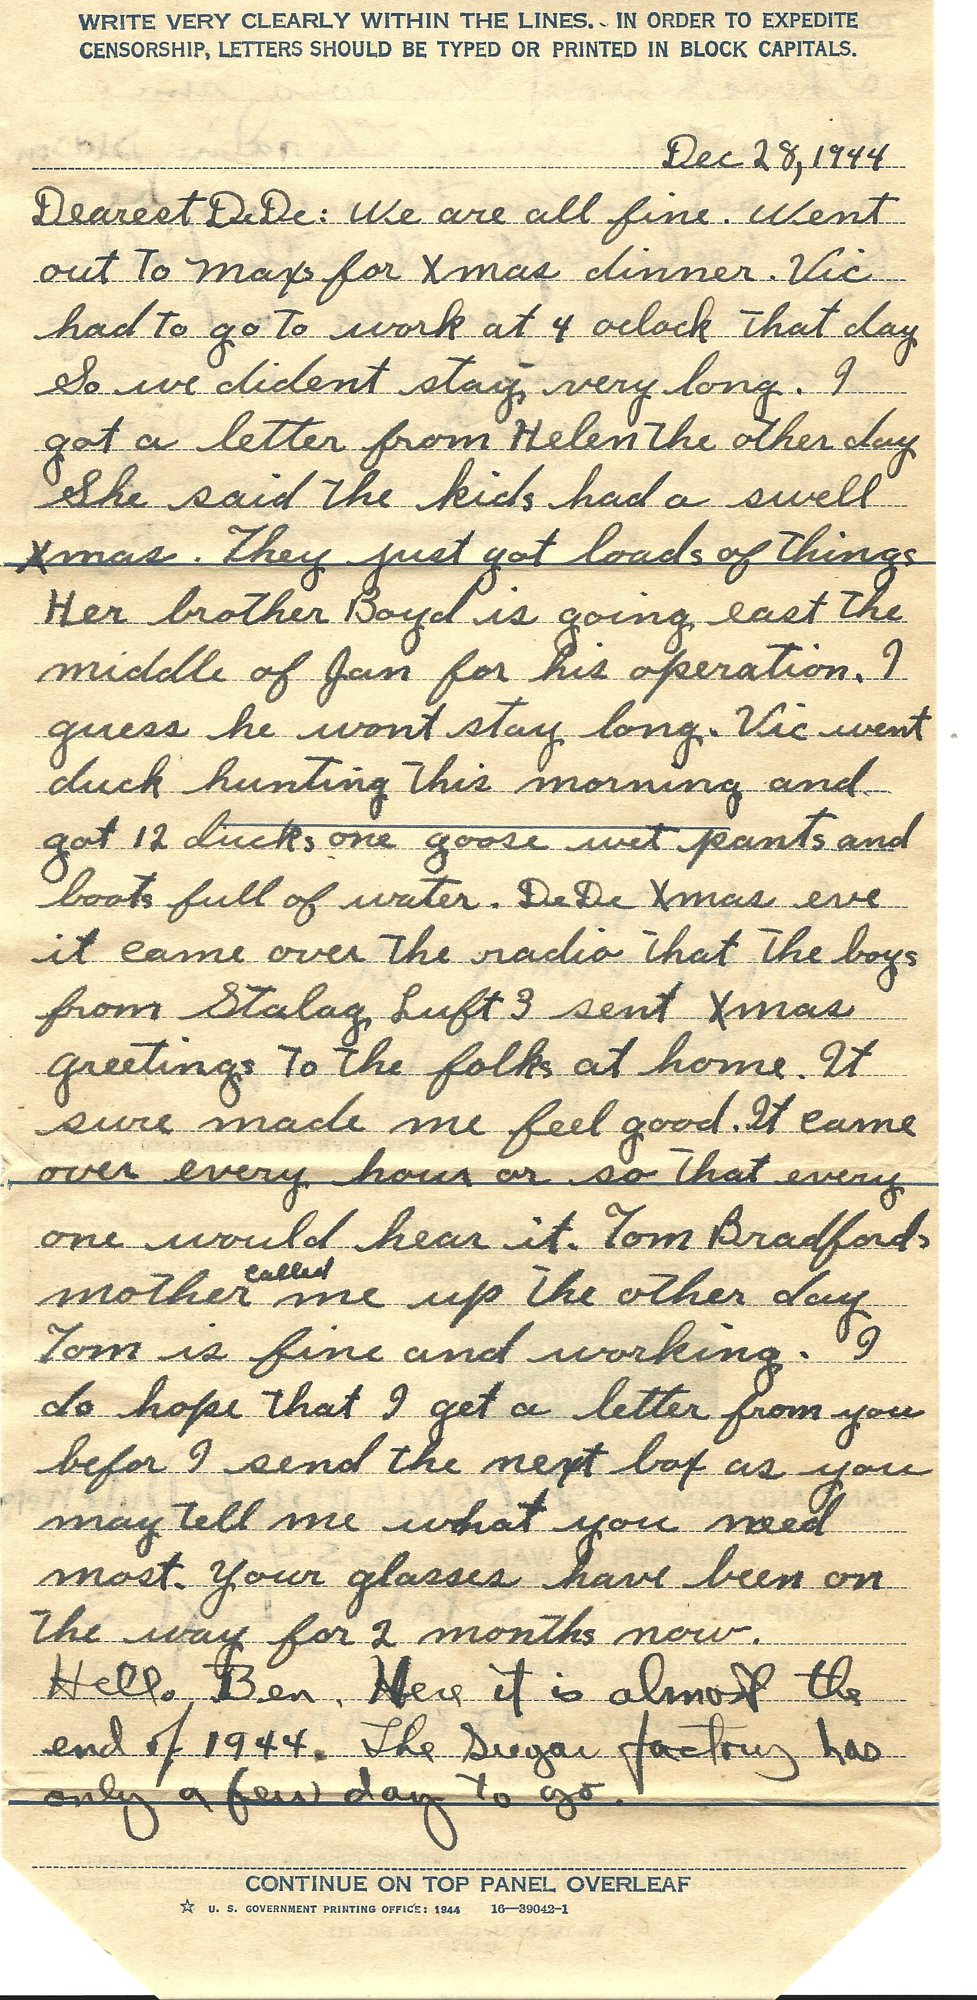 WRITE VERY CLEARLY WITHIN THE LINES. IN ORDER TO EXPEDITE
CENSORSHIP, LETTERS SHOULD BE TYPED OR PRINTED IN BLOCK CAPITALS.
Dec 28, 1944
Dearest DeDe: We are all fine. Went
out to Maxs for Xmas dinner. Vic
had to go to work at 4 oclock that day
So we dident stay very long. I
got a letter from Helen the other day
She said the kids had a swell
Xmas. They just got loads of things
Her brother Boyd is going east the
middle of Jan for his operation. I
guess he wont stay long. Vic went
duck hunting this morning and
got 12 ducks one goose wet pants and
boots full of water. DeDe Xmas eve
it came over the radio that the boys
from Stalag Luft 3 sent Xmas
greetings to the folks at home. It
sure made me feel good. It came
over every hour or so that every
one would hear it. Tom Bradfords
mother called me up the other day
Tom is fine and working. I
do hope that I get a letter from you
befor I send the next box as you
may tell me what you need
most. Your glasses have been on
the way for 2 months now.
Hello Ben. Here it is almost the
end of 1944. The Sugar factory has
only a few day to go.
CONTINUE ON TOP PANEL OVERLEAF
☆ U. S. GOVERNMENT PRINTING OFFICE: 1944 16—39042-1